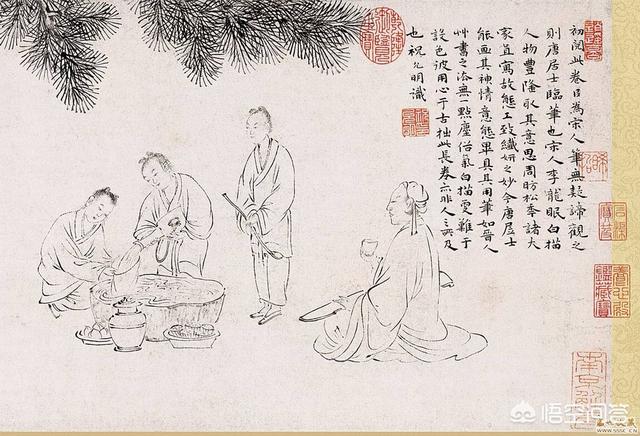 初閱此卷㠯為宋人筆無疑諦觀之
則唐居士臨筆也宋人李龍眠白描
人物豐隆取其意思周昉松年諸大
家直寫故態工致纖妍之妙今唐居士
能画其神情意態畢具其用筆如晉人
艸書之法無一點塵俗氣白描更難于
設色彼用心于古拙此長卷亦非人所及
也祝允明識
養心殿鑑藏寶
悟空问答
WWW.SSSC.CN